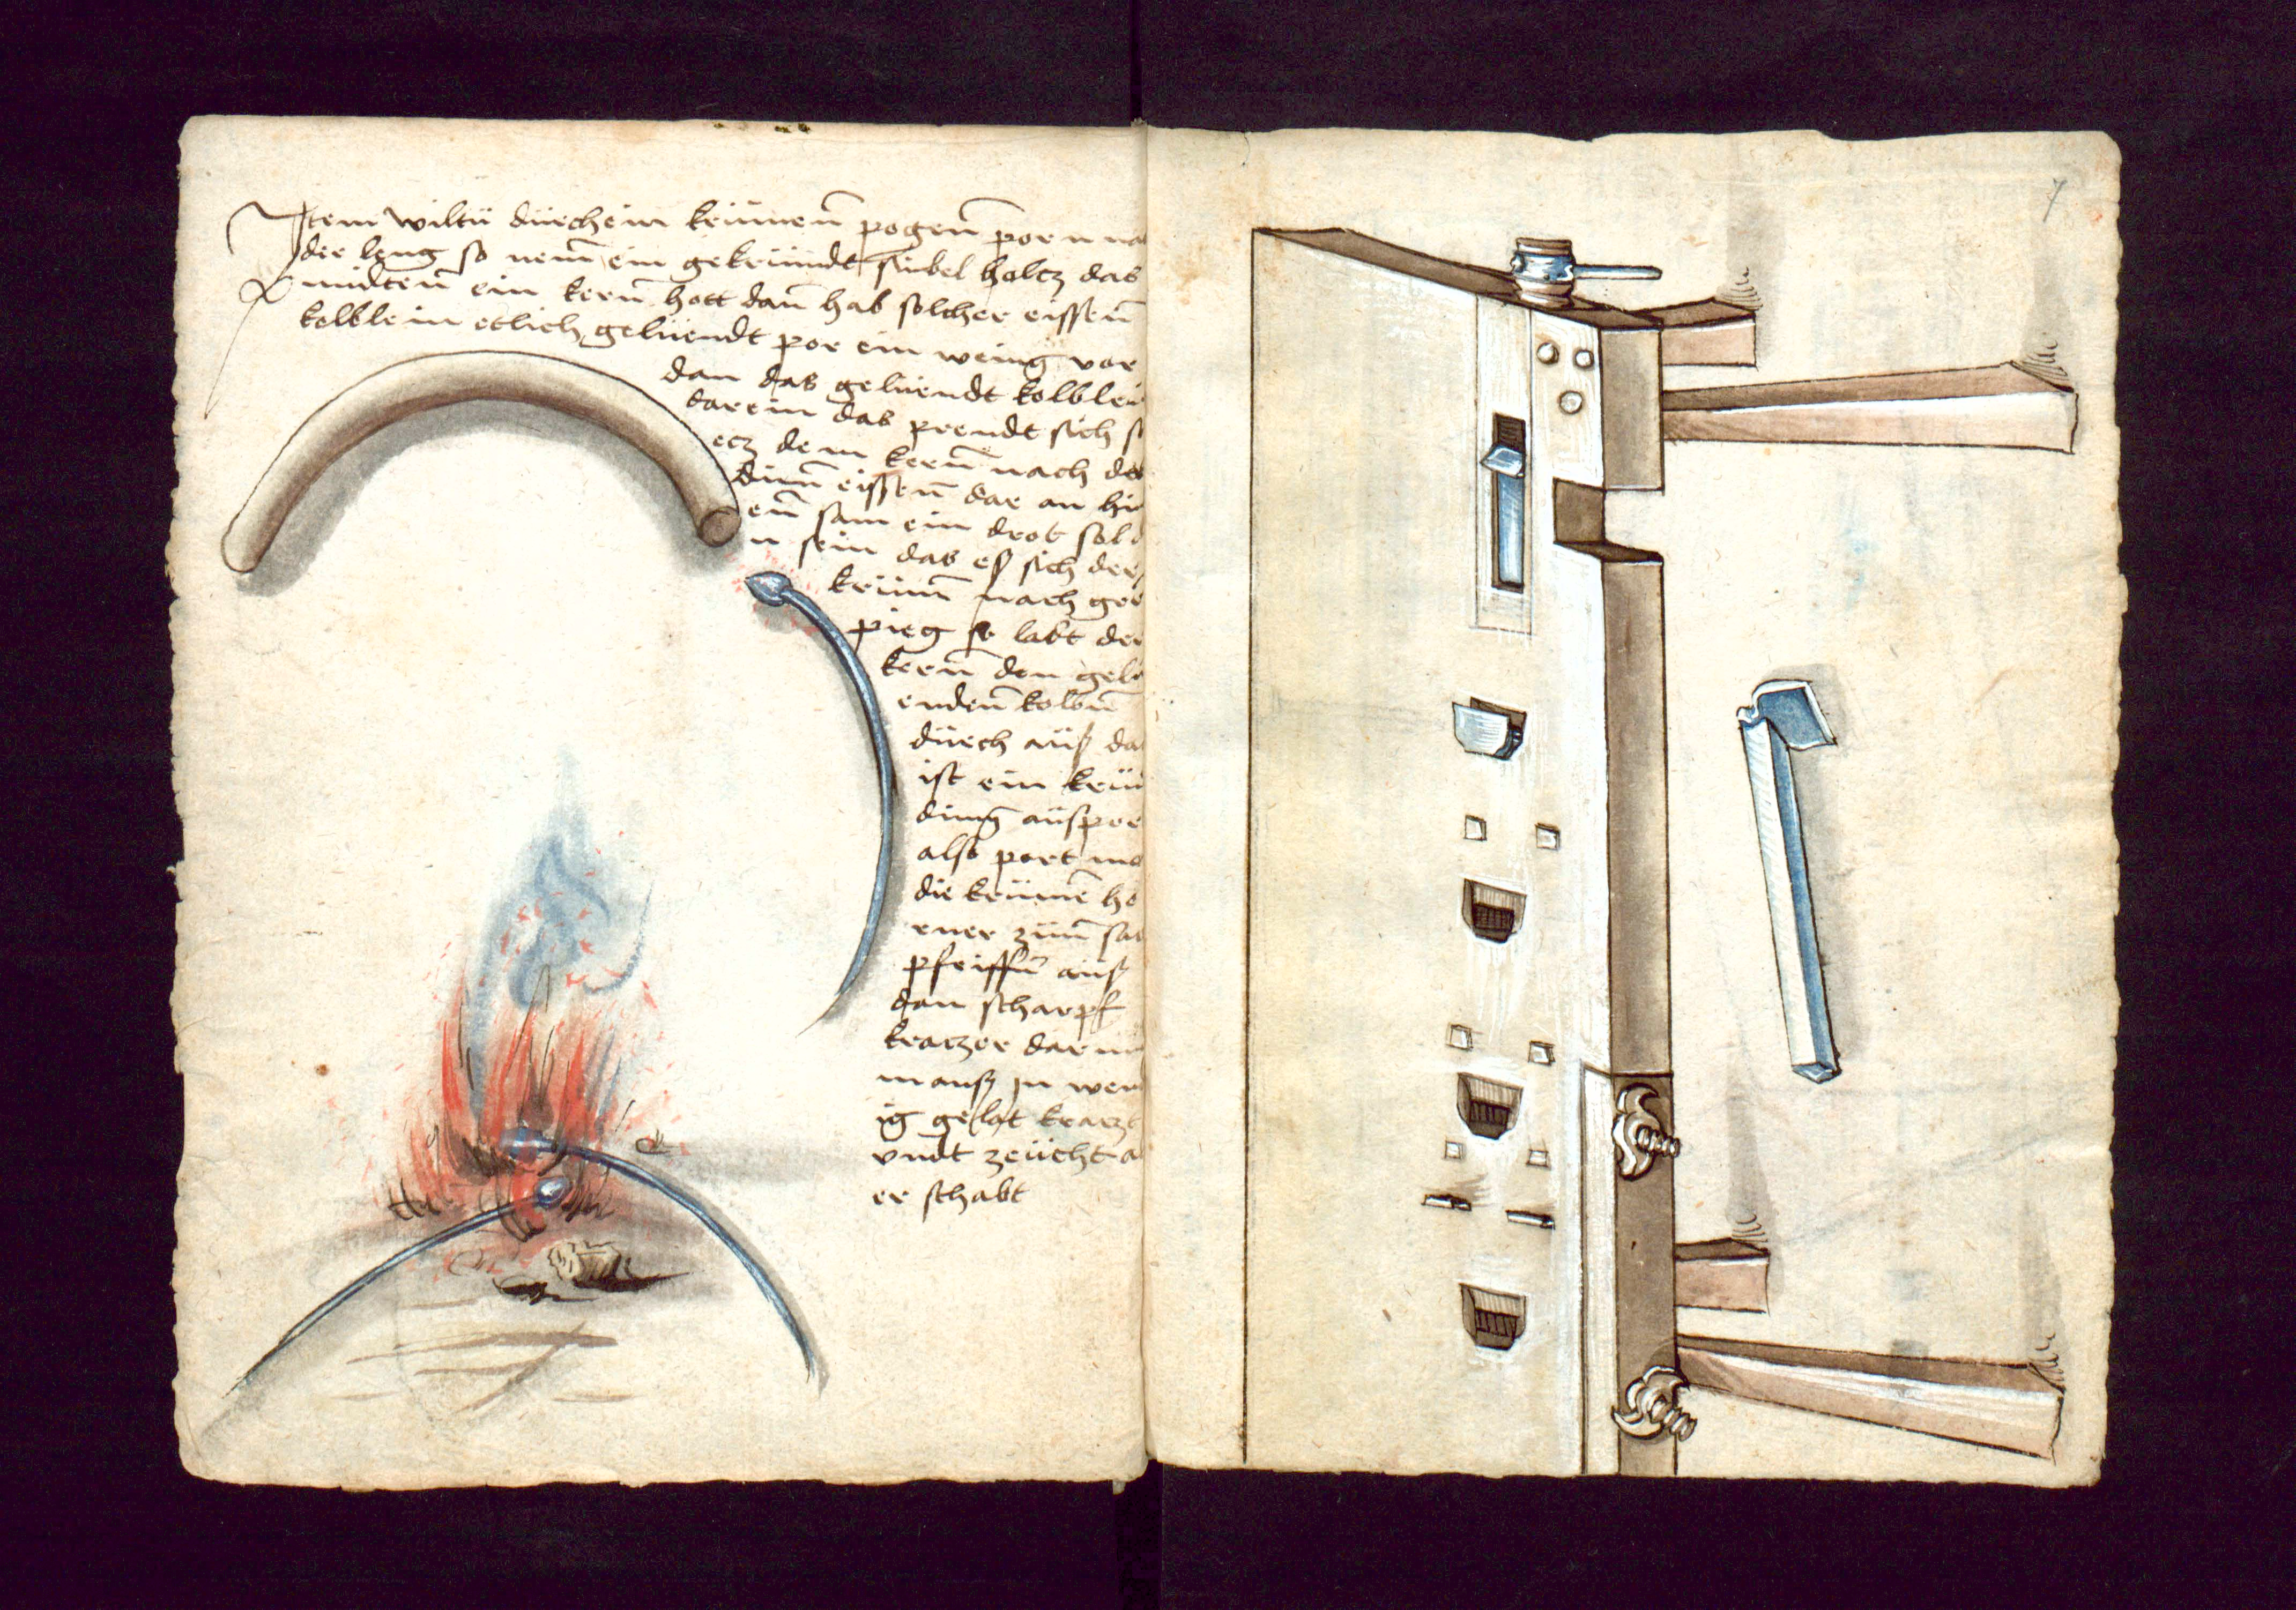 Item wiltu durch ein krümen pogen porn na
der leng so nem ein gekrümdt sinbel holcz das
midten ein kern hott dan hab solcher eissen
kolblein etlich geluendt por ein weing vor
dan das geluendt kolblei
darein das prendt sich s
ecz dem kern nach de
dinn eissen dar an hi
en sam ein drot sol
n sein das es sich der
krüm nach ge
pieg so labt der
kern den gelu
enden kolben
durch auß da
ist ein krüm
ding außpor
also port ma
die krümen ho
rner zum sa
pfeiffen auß
dan scharpf
kraczer dar
mansz in wen
ig gelat kraczt
vndt zeücht a
er schabt
7